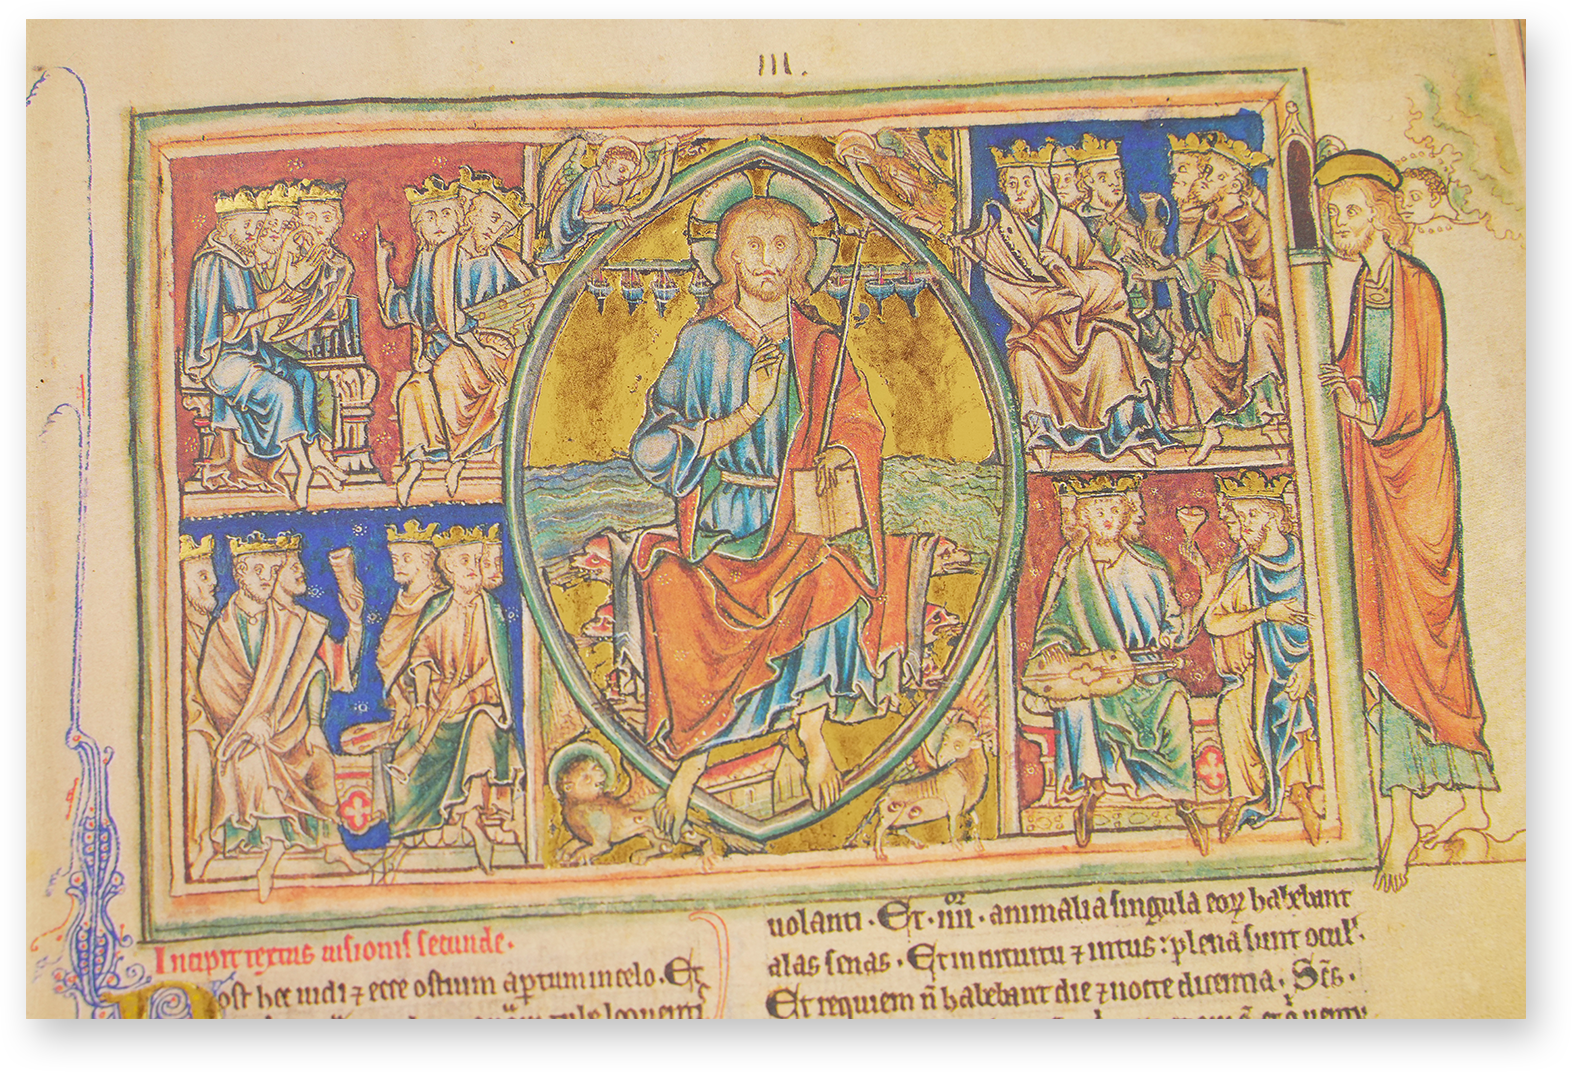 III.
Incipit textus uisionis secunde.
Post hec uidi ⁊ ecce ostium aptum in celo. Et
uolanti. Et. iiiior. animalia singula eoꝝ habebant
alas senas. Et in circuitu ⁊ intus: plena sunt ocul'.
Et requiem n̄ habebant die ⁊ nocte dicentia. Scs̄.